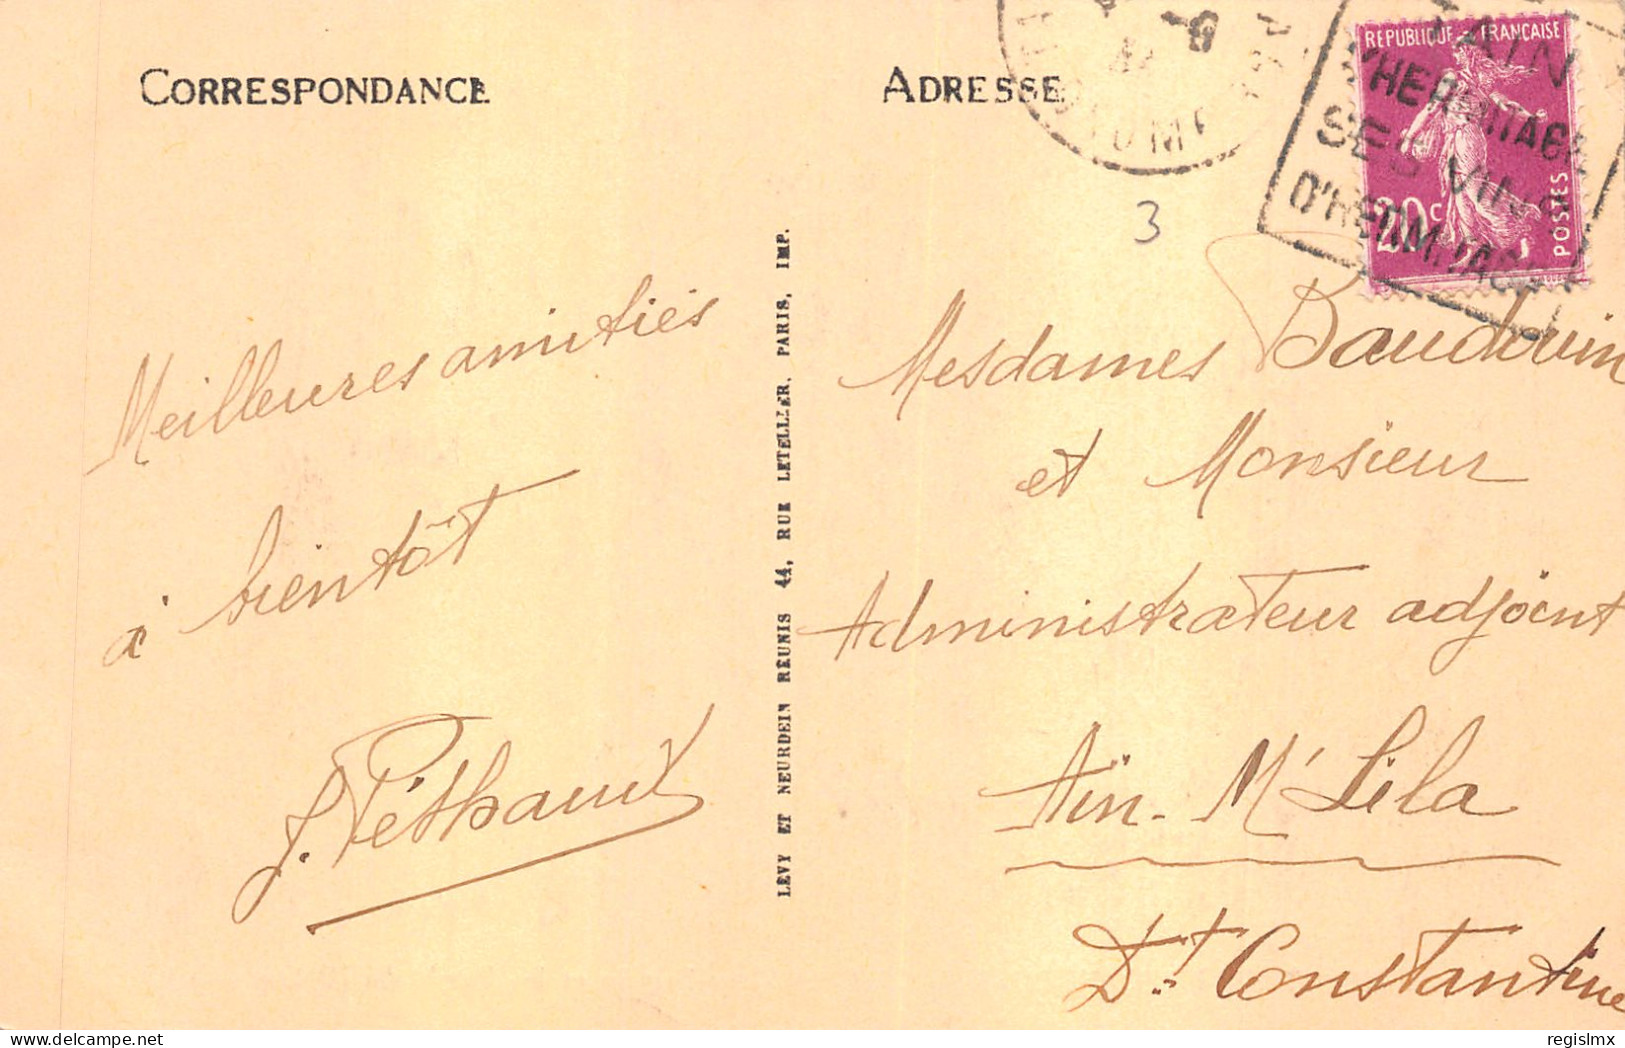 CORRESPONDANCE
ADRESSE
REPUBLIQUE FRANÇAISE
20c
POSTES
TAIN
L'HERMITAGE
SES VINS
D'HERMITAGE
3
Meilleures amitiés
à bientôt
LÉVY ET NEURDEIN RÉUNIS 44, RUE LETELLIER, PARIS, IMP.
Mesdames Baudouin
et Monsieur
Administrateur adjoint
Aïn-M'Lila
Dt Constantine
regislmx